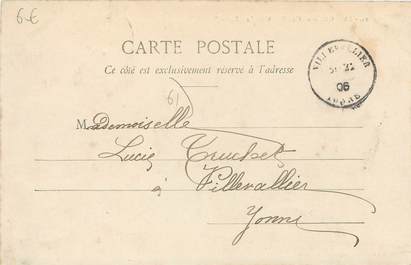 6 €
CARTE POSTALE
Ce côté est exclusivement réservé à l'adresse
61
Mademoiselle
Lucie Truchet
à Villevallier
Yonne
VILLEVALLIER
22
06
YONNE